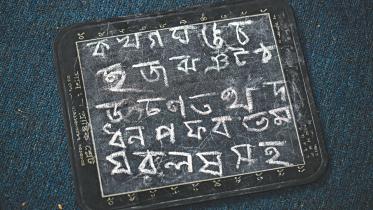 ক খ গ ঘ ঙ চ
ছ জ ঝ ঞ ট ঠ
ড ঢ ণ ত থ দ
ধ ন প ফ ব ভ ম
য র ল ষ স হ